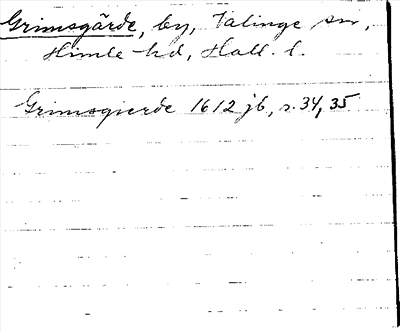 Grimsgärde, by, Valinge sn,
Himle hd, Hall. l.
Grimsgierde 1612 jb, s. 34, 35